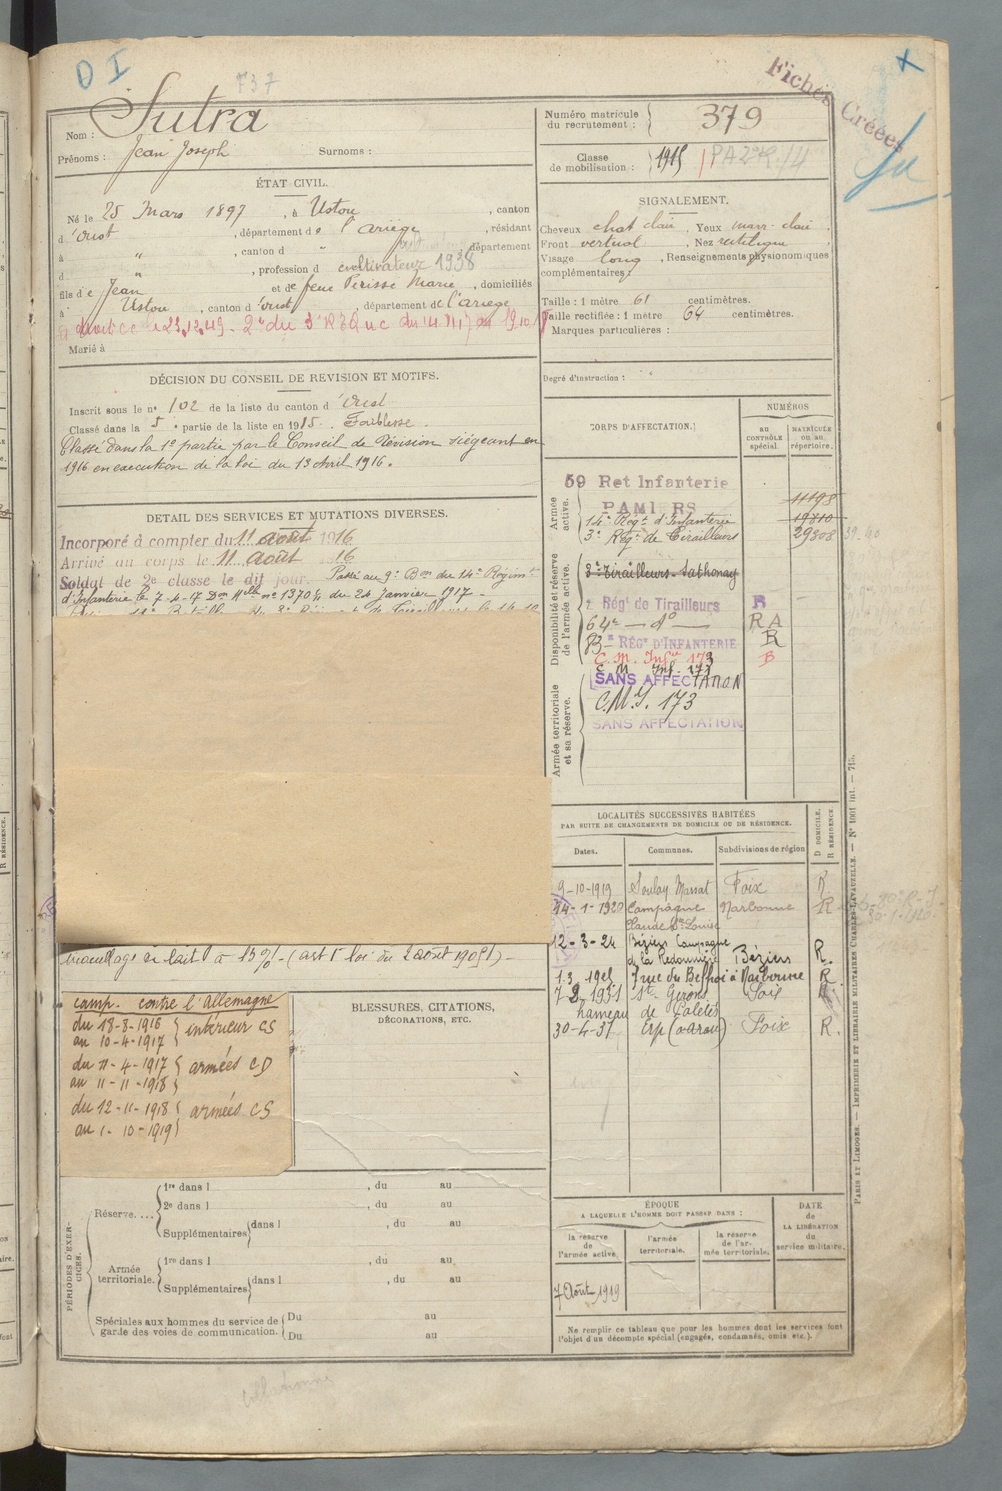 D I
737
Fichés Créées
Nom : Sutra
Prénoms : Jean Joseph Surnoms :
Numéro matricule du recrutement : 379
Classe de mobilisation : 1915
ÉTAT CIVIL.
Né le 25 Mars 1897, à Ustou, canton
d'Oust, département de l'Ariège, résidant
à " , canton d " , département
d " , profession d cultivateur 1938
fils de Jean et de feue Périsse Marie, domiciliés
à Ustou, canton d'Oust, département de l'ariege
Marié à
SIGNALEMENT.
Cheveux chat clair, Yeux marr. clair
Front vertical, Nez rectiligne
Visage long, Renseignements physionomiques
complémentaires :
Taille : 1 mètre 61 centimètres.
Taille rectifiée : 1 mètre 64 centimètres.
Marques particulières :
Degré d'instruction :
DÉCISION DU CONSEIL DE REVISION ET MOTIFS.
Inscrit sous le n° 102 de la liste du canton d'Oust
Classé dans la 5e partie de la liste en 1915. Faiblesse.
Classé dans la 1e partie par le Conseil de Révision siégeant en
1916 en execution de la loi du 13 Avril 1916.
DETAIL DES SERVICES ET MUTATIONS DIVERSES.
Incorporé à compter du 11 août 1916
Arrivé au corps le 11 Août 16
Soldat de 2e classe le dit jour. Passé au 9e Bon du 14e Régimt
d'Infanterie le 7-4-17 Don Mlle n° 1370 du 24 Janvier 1917 -
CORPS D'AFFECTATION.
NUMÉROS
AU CONTRÔLE spécial.
MATRICULE ou au répertoire.
Armée active.
59 Ret Infanterie
PAMIERS 11198
14e Régt d'Infanterie 19810
3e Régt de Tirailleurs 29808
Disponibilité et réserve de l'armée active.
3e Tirailleurs Sathonay
Régt de Tirailleurs R
64e — do — R A
83e RÉGt D'INFANTERIE R
C. M. Infie 173 B
C. M. Inf. 173
SANS AFFECTATION
Armée territoriale et sa réserve.
C.M.I. 173
SANS AFFECTATION
LOCALITÉS SUCCESSIVES HABITÉES
PAR SUITE DE CHANGEMENTS DE DOMICILE OU DE RÉSIDENCE.
Dates. Communes. Subdivisions de région D DOMICILE. R RÉSIDENCE.
9-10-1919 Soulay Massat Foix R
14-1-1920 Campagne Narbonne R
12-3-24 Béziers Campagne
de la Redonnière Béziers R.
7 rue du Beffroi à Narbonne R
1931 St Girons Foix R
hameau de
30-4-31 Erp (par Arou) Foix R.
mouillage de lait à 15 % - (art 1 loi du 1 août 1905) -
camp. contre l'Allemagne
du 18-8-1916
au 10-4-1917 } intérieur CS
du 11-4-1917
au 11-11-1918 } armées CD
du 12-11-1918 { armées CS
au 1-10-1919 }
BLESSURES, CITATIONS,
DÉCORATIONS, ETC.
PÉRIODES D'EXERCICES.
Réserve....
1re dans l , du au
2e dans l , du au
Supplémentaires dans l , du au
Armée territoriale.
1re dans l , du au
Supplémentaires dans l , du au
Spéciales aux hommes du service de garde des voies de communication.
Du au
Du au
ÉPOQUE
A LAQUELLE L'HOMME DOIT PASSER DANS :
la réserve de l'armée active. l'armée territoriale. la réserve de l'armée territoriale.
DATE de LA LIBÉRATION du service militaire.
7 Août 1919
Ne remplir ce tableau que pour les hommes dont les services font
l'objet d'un décompte spécial (engagés, condamnés, omis etc.).
PARIS ET LIMOGES. — IMPRIMERIE ET LIBRAIRIE MILITAIRES CHARLES-LAVAUZELLE. — N° 1001 int. — 715.